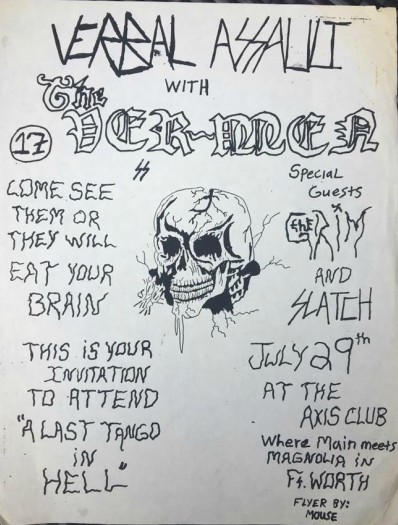 VERBAL ASSAULT
WITH
The
VER-MEN
17
COME SEE
THEM OR
THEY WILL
EAT YOUR
BRAIN
THIS IS YOUR
INVITATION
TO ATTEND
"A LAST TANGO
IN
HELL"
Special
Guests
THE GRIM
AND
SLATCH
JULY 29th
AT THE
AXIS CLUB
Where Main meets
MAGNOLIA IN
Ft. WORTH
FLYER BY:
MOUSE